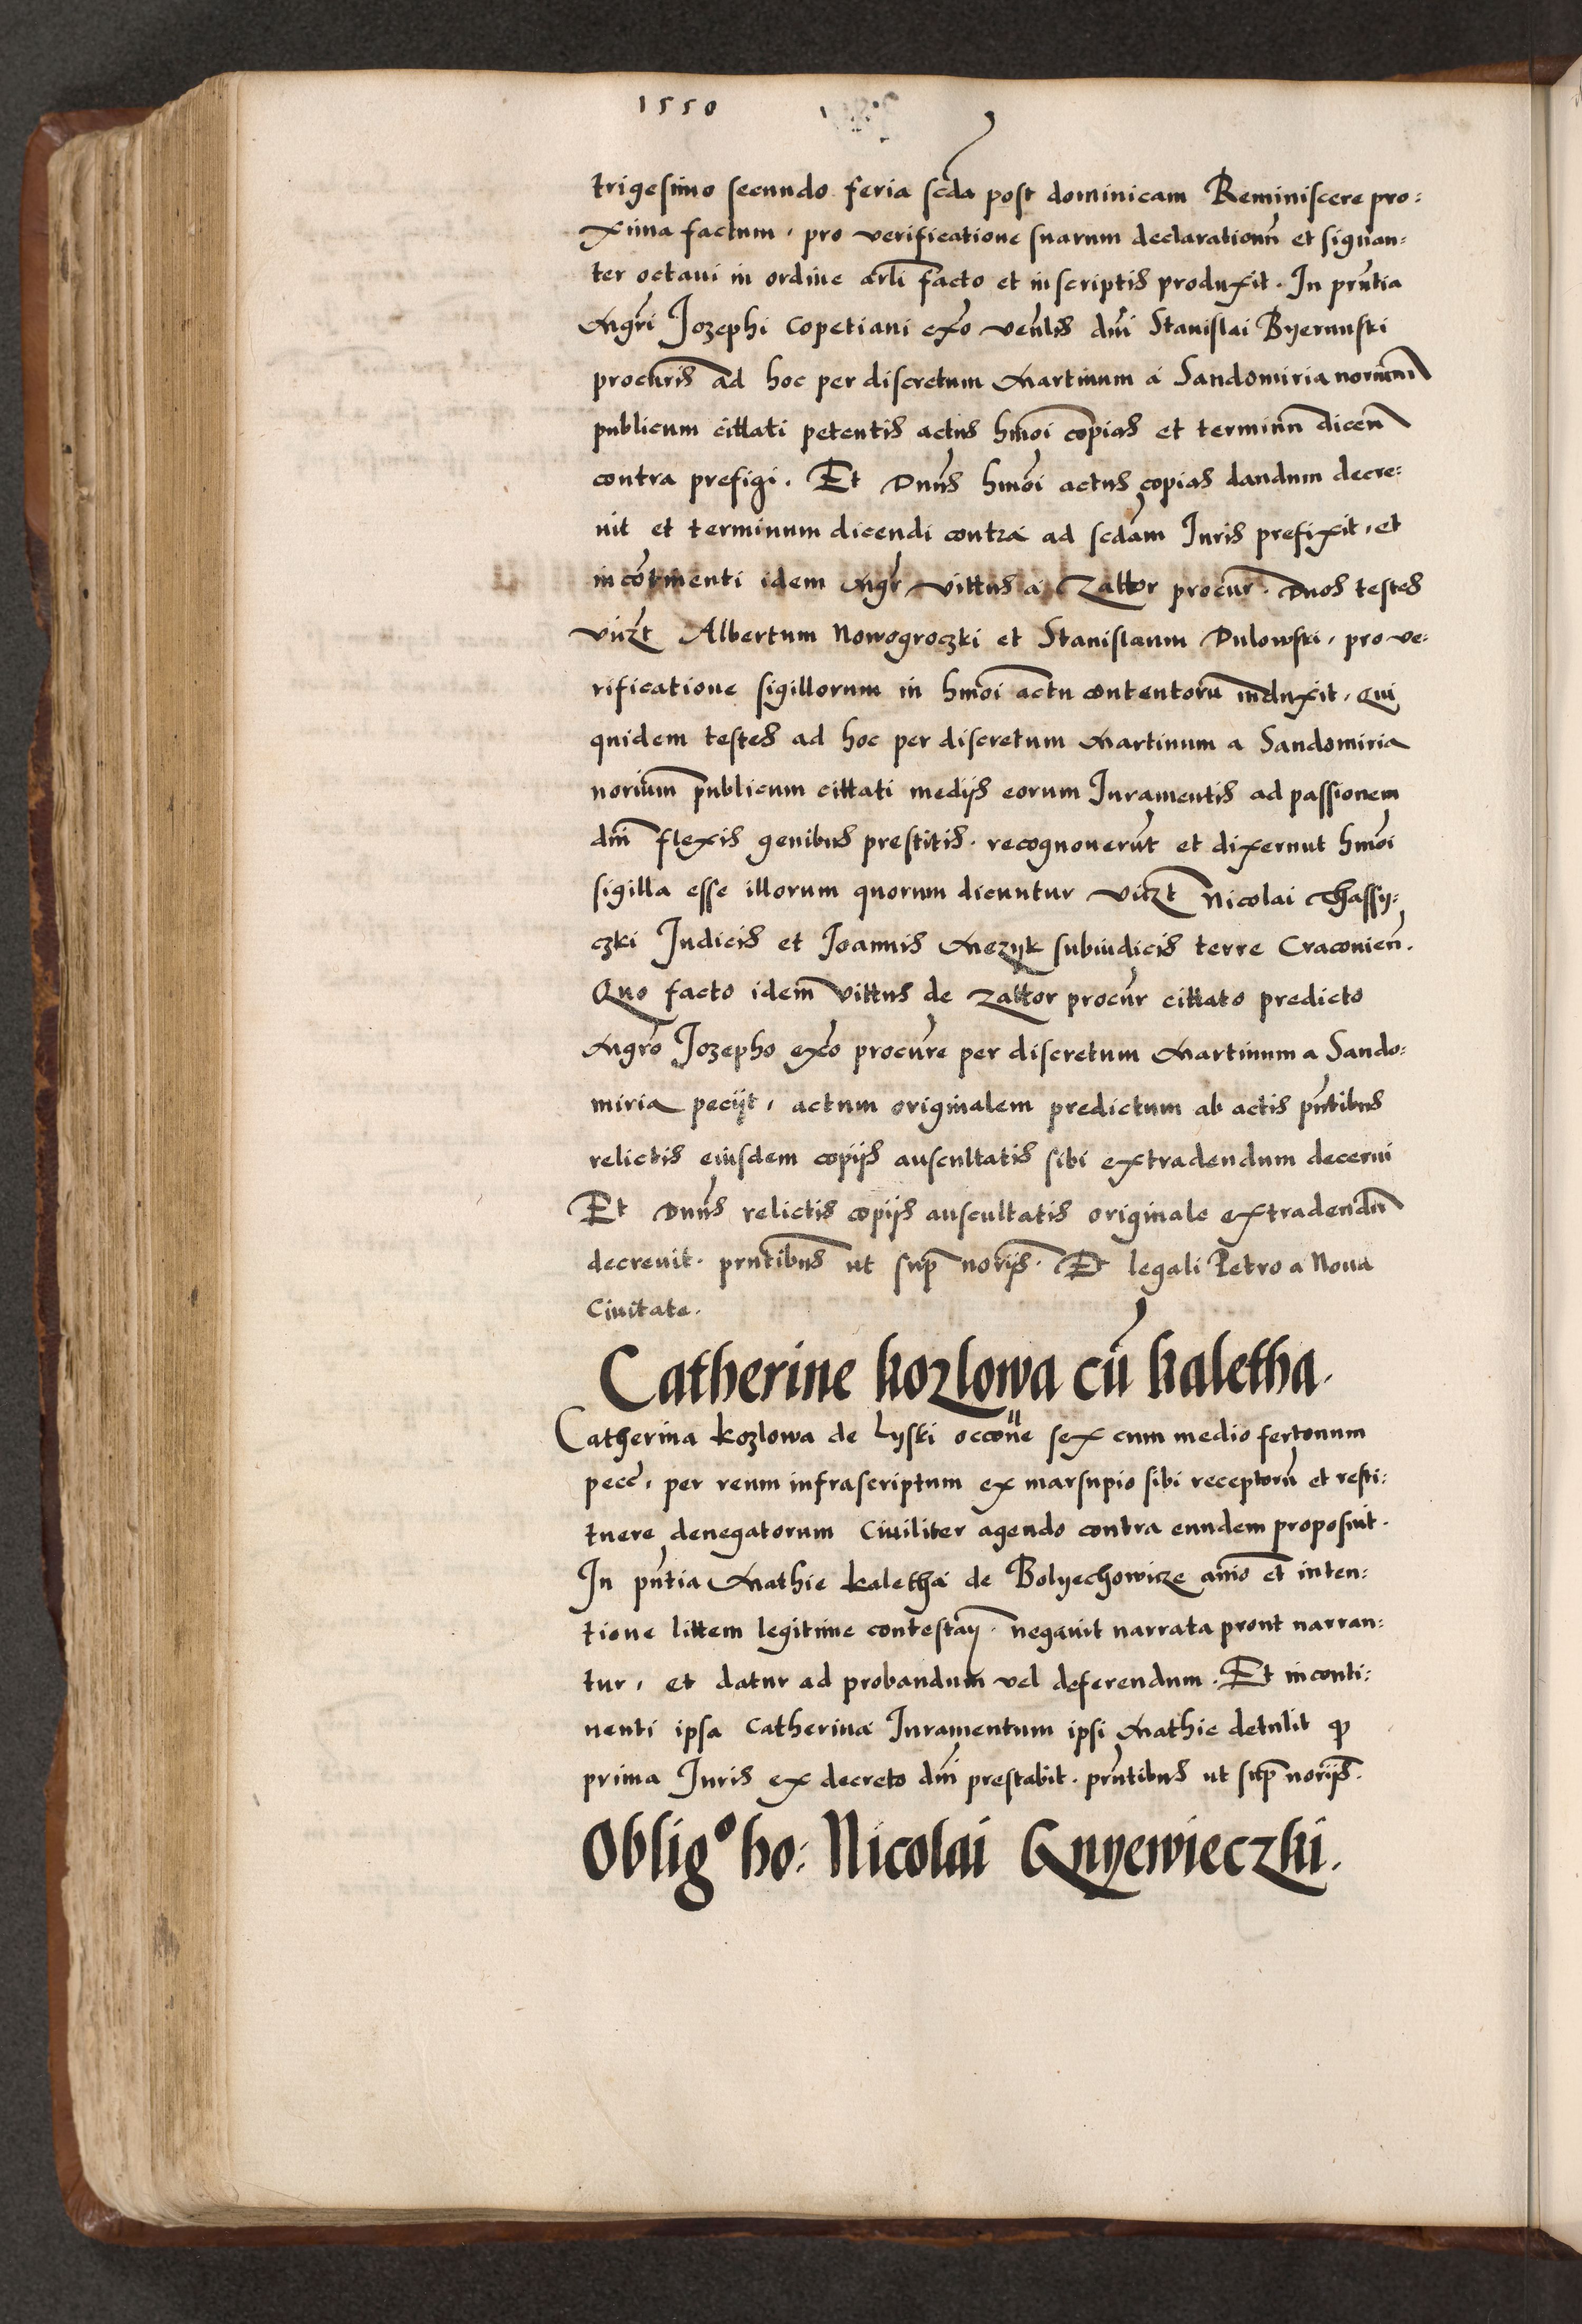 1550
trigesimo secundo feria scda post dominicam Reminiscere pro:
xima factum, pro verificatione suarum declarationũ et signan:
ter octaui in ordine arli facto et in scriptis produxit. In pñtia
Mgri Jozephi Copetiani exo veñlis dñi Stanislai Byernski
procuris ad hoc per discretum Martinum a Sandomiria norium
publicum cittati petentis actus hmoi copias et terminũ diceñ
contra prefigi. Et Dnus hmoi actus copias dandum decre:
uit et terminum dicendi contra ad scdam Juris prefixit, et
in continenti idem Mgr vittus a Zattor procur. Duos testes
vidzt Albertum Nowogroczki et Stanislaum Dulowski, pro ve:
rificatione sigillorum in hmoi actu contentorũ induxit, Qui
quidem testes ad hoc per discretum Martinum a Sandomiria
norium publicum cittati medijs eorum Juramentis ad passionem
dñi flexis genibus prestitis. recognouerũt et dixerunt hmoi
sigilla esse illorum quorum dicuntur vidzt Nicolai Chassy:
czki Judicis et Joannis Mezyk subiudicis terre Cracovieñ.
Quo facto idem vittus de Zattor procur cittato predicto
Mgro Jozepho exo procure per discretum Martinum a Sando:
miria pecijt, actum originalem predictum ab actis pñtibus
relictis eiusdem copijs auscultatis sibi extradendum decerni
Et Dnus relictis copijs auscultatis originale extradendũ
decreuit. pñtibus ut sup norijs. Et legali Petro a Noua
Ciuitate.
Catherine kozlowa cũ kaletha.
Catherina kozlowa de Lyski occone sex cum medio fertonum
pecc, per reum infrascriptum ex marsupio sibi receptorũ et resti:
tuere denegatorum Ciuiliter agendo contra eundem proposuit.
In pñtia Mathie kaletha de Bolyechowicze anio et inten:
tione littem legitime contestaŋ. negauit narrata prout narran:
tur, et datur ad probandum vel deferendum. Et inconti:
nenti ipsa Catherina Juramentum ipsi Mathie detulit qđ
prima Juris ex decreto dñi prestabit. pñtibus ut sup norijs.
Obligº ho: Nicolai Gnyewieczki.